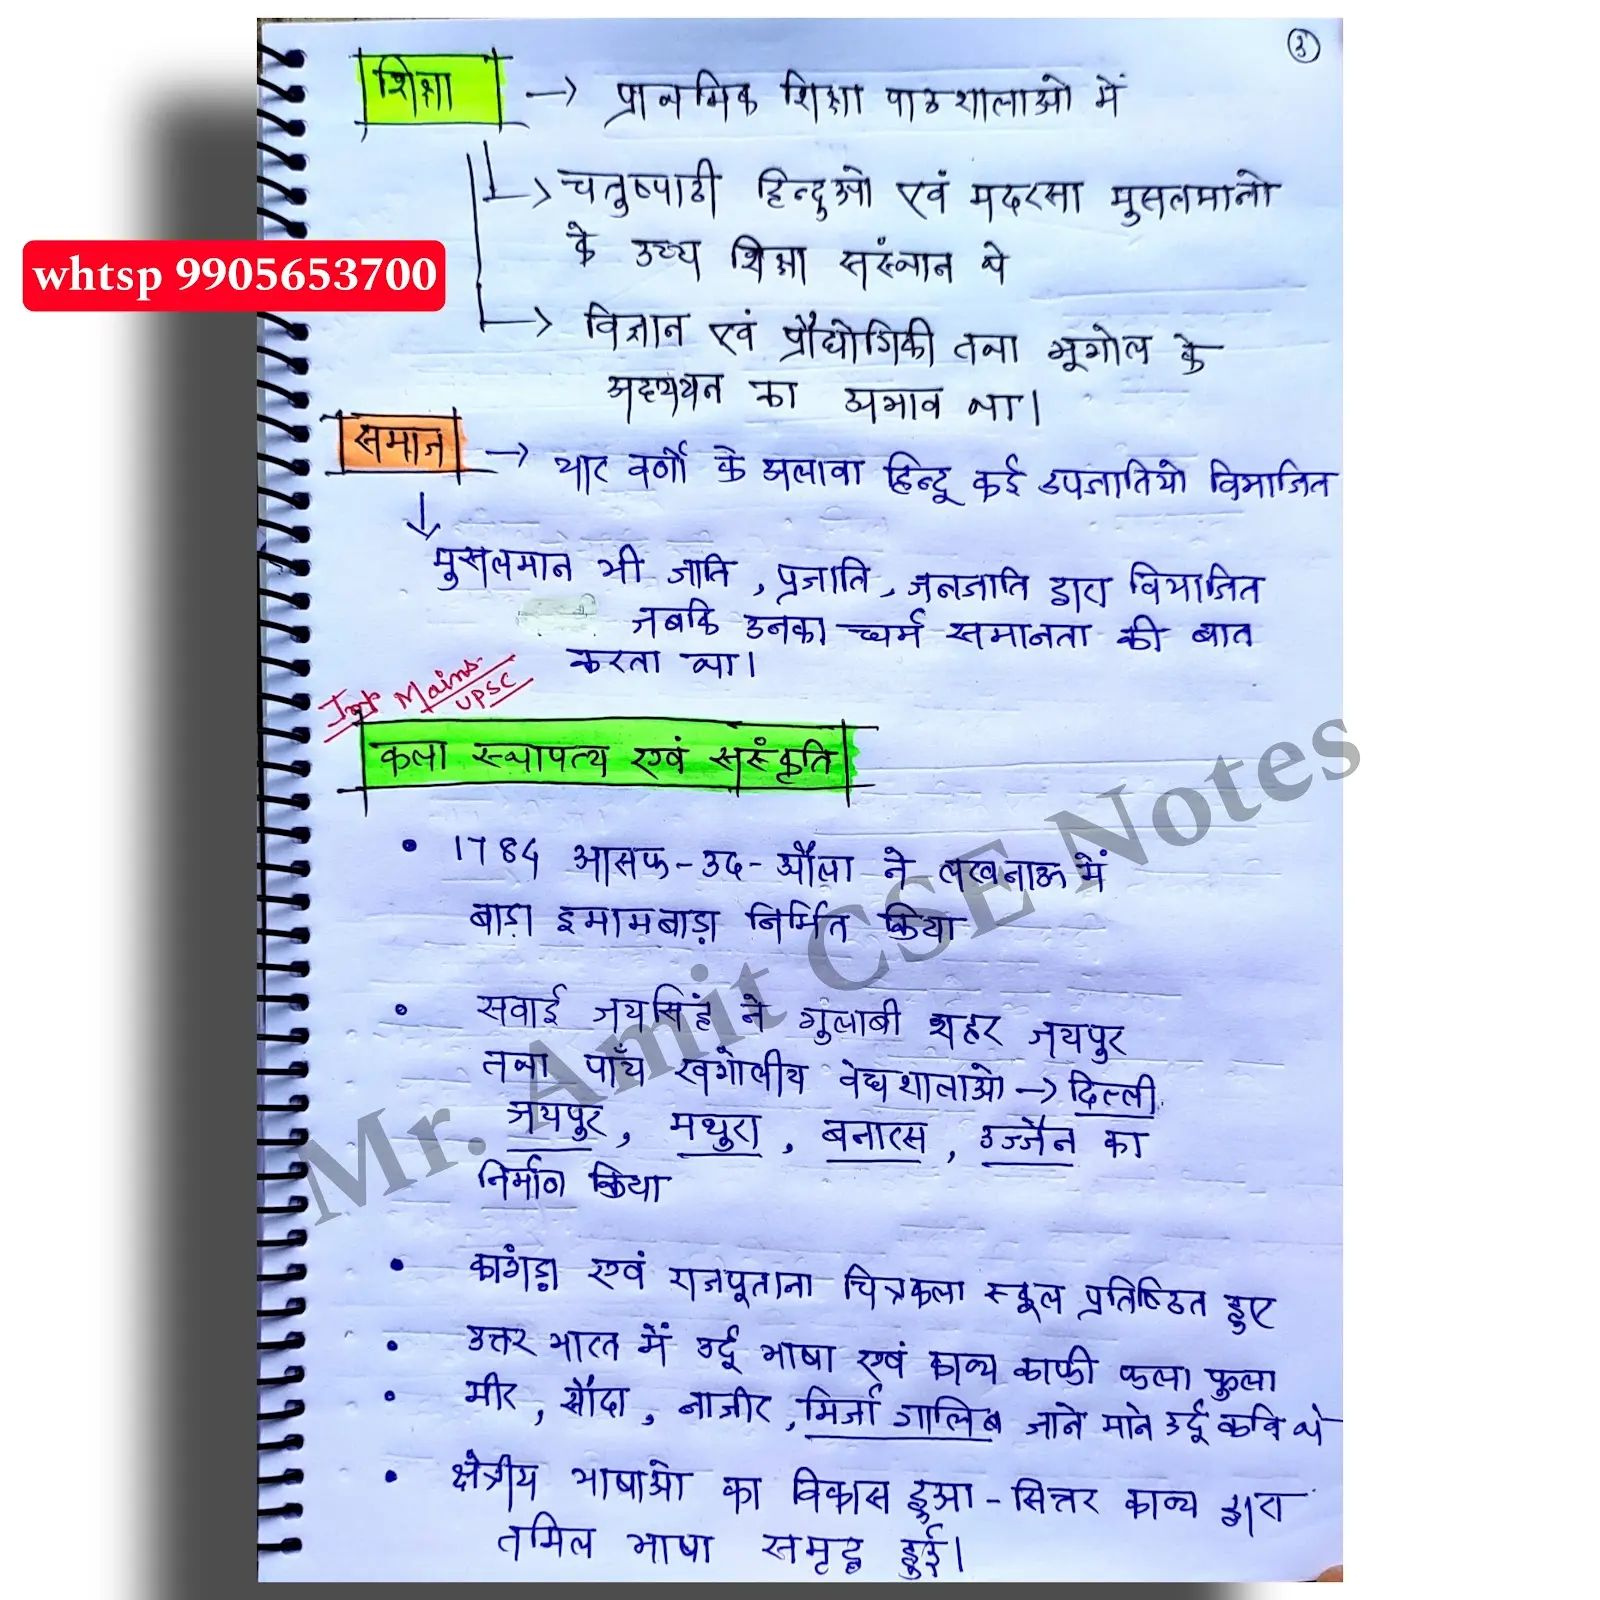 3
शिक्षा → प्राथमिक शिक्षा पाठशालाओ में
→ चतुष्पाठी हिन्दुओ एवं मदरसा मुसलमानो
के उच्च शिक्षा संस्थान थे
whtsp 9905653700
→ विज्ञान एवं प्रौद्योगिकी तथा भूगोल के
अध्ययन का अभाव था।
समाज → चार वर्णो के अलावा हिन्दू कई उपजातियो विभाजित
↓
मुसलमान भी जाति, प्रजाति, जनजाति द्वारा विभाजित
जबकि उनका धर्म समानता की बात
करता था।
Impt Mains
UPSC
कला स्थापत्य एवं संस्कृति
• 1784 आसफ-उद-दौला ने लखनाऊ में
बाड़ा इमामबाड़ा निर्मित किया
• सवाई जयसिंह ने गुलाबी शहर जयपुर
तथा पाँच खगोलीय वेधशालाओ → दिल्ली,
जयपुर, मथुरा, बनारस, उज्जैन का
निर्माण किया
• कांगड़ा एवं राजपूताना चित्रकला स्कूल प्रतिष्ठित हुए
• उत्तर भारत में उर्दू भाषा एवं काव्य काफी फला फुला
• मीर, सौदा, नाजीर, मिर्जा गालिब जाने माने उर्दू कवि थे
• क्षेत्रीय भाषाओ का विकास हुआ - सित्तर काव्य द्वारा
तमिल भाषा समृद्ध हुई।
Mr. Amit CSE Notes